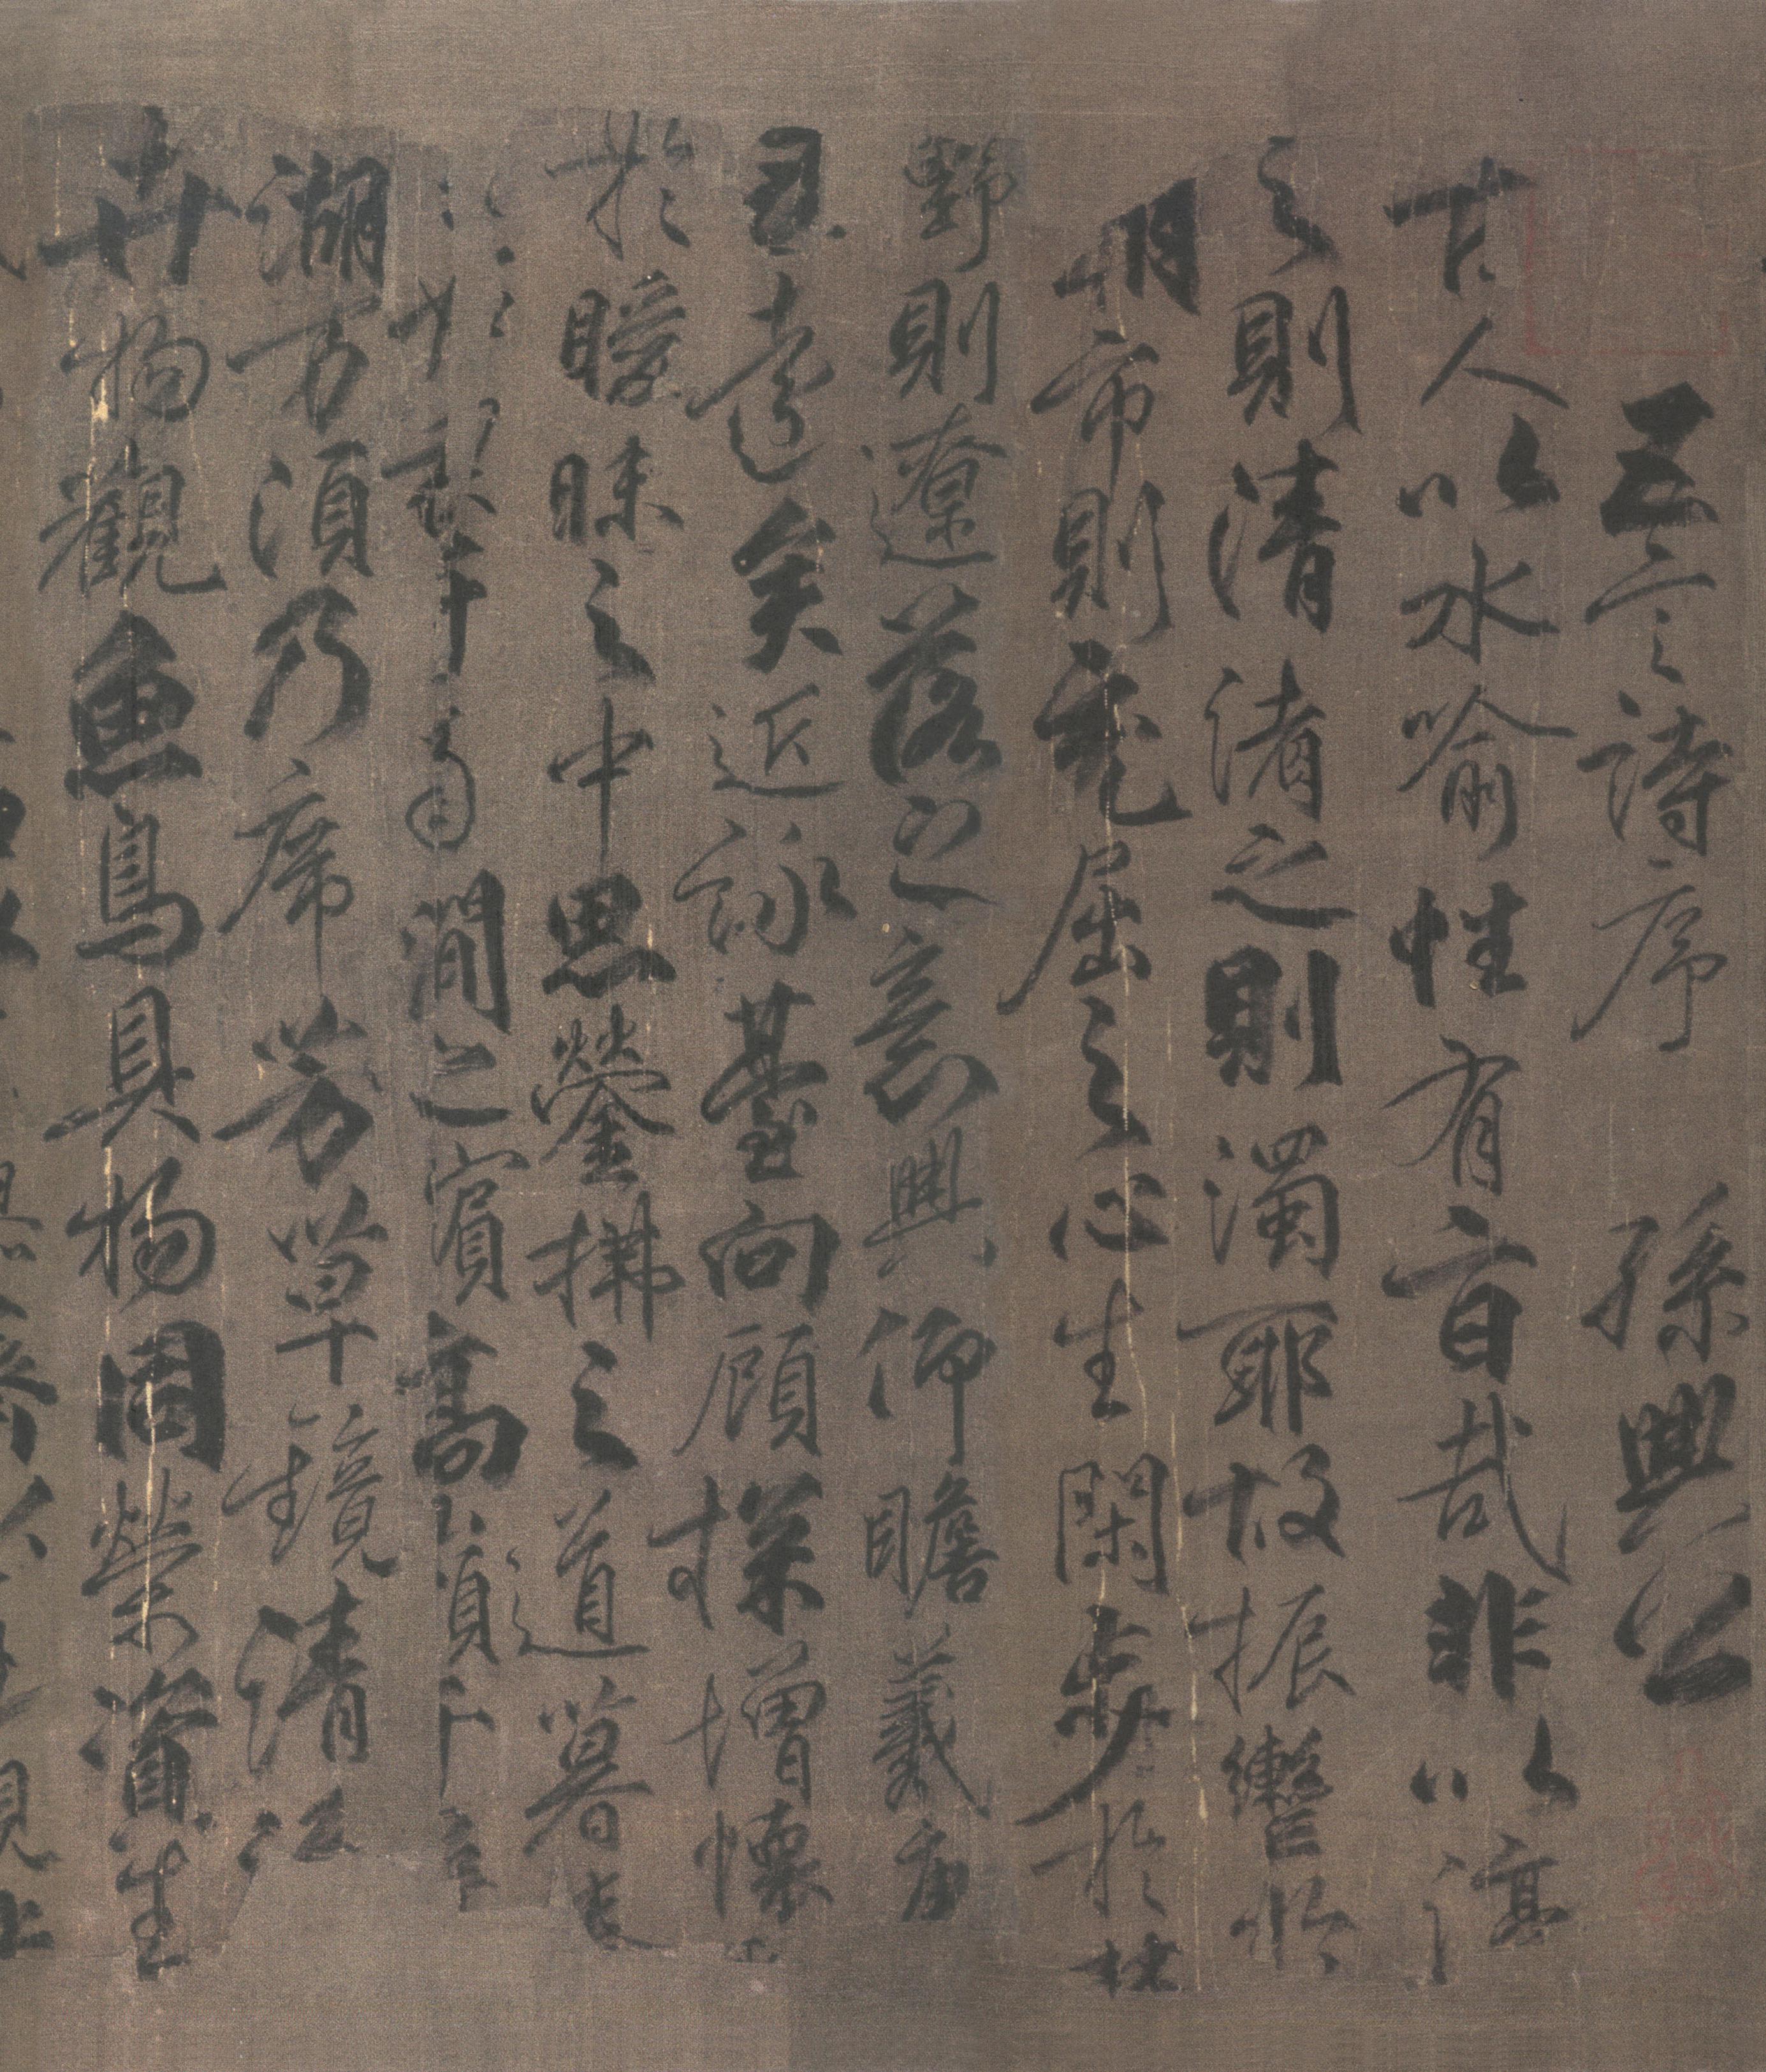 五言詩序 孫興公
古人以水喻性有旨哉非以渟
之則清渚之則濁耶故振轡於
朝市則充屈之心生閑步於林
野則遼落之意興仰瞻羲唐
已遠矣近詠臺向顧探增懷
於曖昧之中思鎣拂之道暮春
禊于南澗之濱高嶺千
湖万湏乃席芳草鏡清流
卉物觀魚鳥具物同榮資生